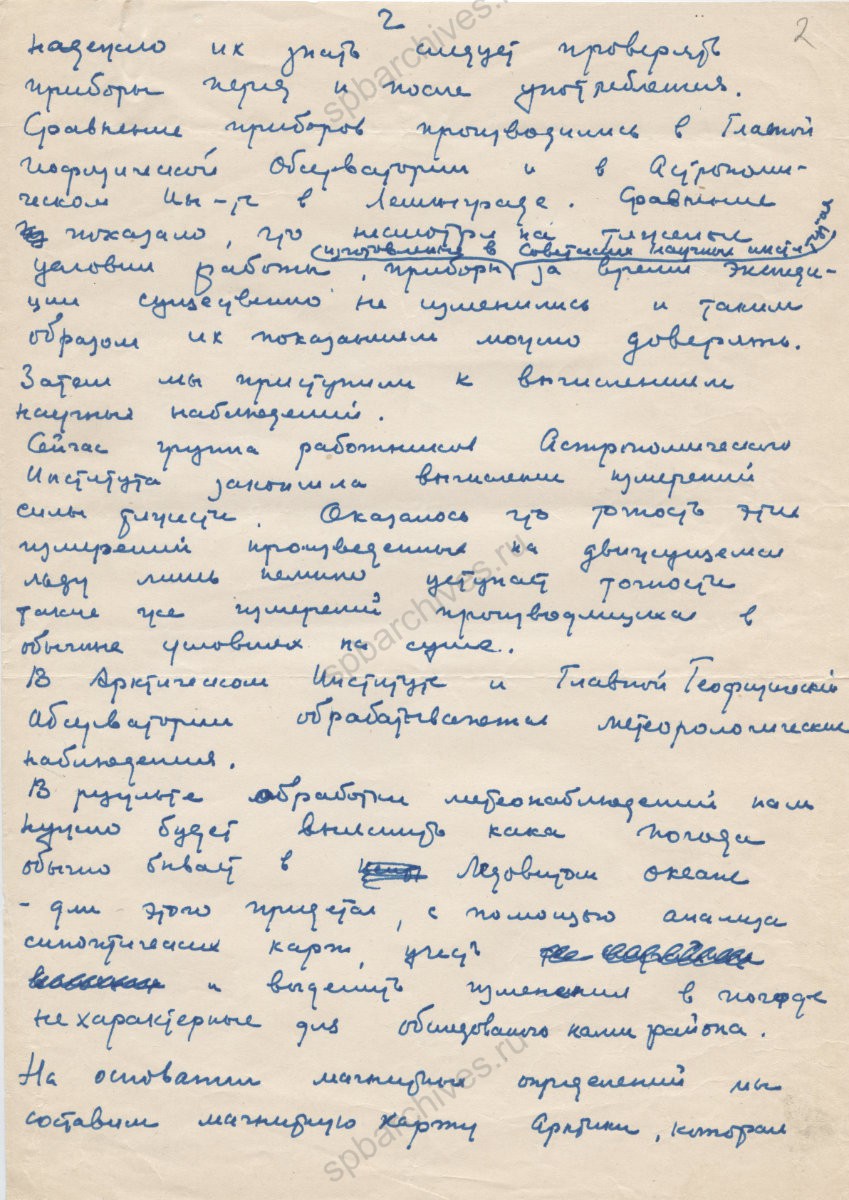 2
2
надежно их знать следует проверять
приборы перед и после употребления.
Сравнение приборов производились в Главной
Геофизической Обсерватории и в Астрономи-
ческом Ин-те в Ленинграде. Сравнение
показало, что несмотря на тяжелые
изготовленные в Советских научных институтах
условия работы, приборы за время экспеди-
ции существенно не изменились и таким
образом их показаниям можно доверять.
Затем мы приступили к вычислениям
научных наблюдений.
Сейчас группа работников Астрономического
Института закончила вычисление измерений
силы тяжести. Оказалось что точность этих
измерений произведенных на движущемся
льду лишь немного уступает точности
таких же измерений производящихся в
обычных условиях на суше.
В Арктическом Институте и Главной Геофизической
Обсерватории обрабатываются метеорологические
наблюдения.
В результате обработки метеонаблюдений нам
нужно будет выяснить какая погода
обычно бывает в Ледовитом океане
- для этого придется, с помощью анализа
синоптических карт, учесть
и выделить изменения в погоде
не характерные для обследованного нами района.
На основании магнитных определений мы
составим магнитную карту Арктики, которая
spbarchives.ru
spbarchives.ru
spbarchives.ru
spbarchives.ru